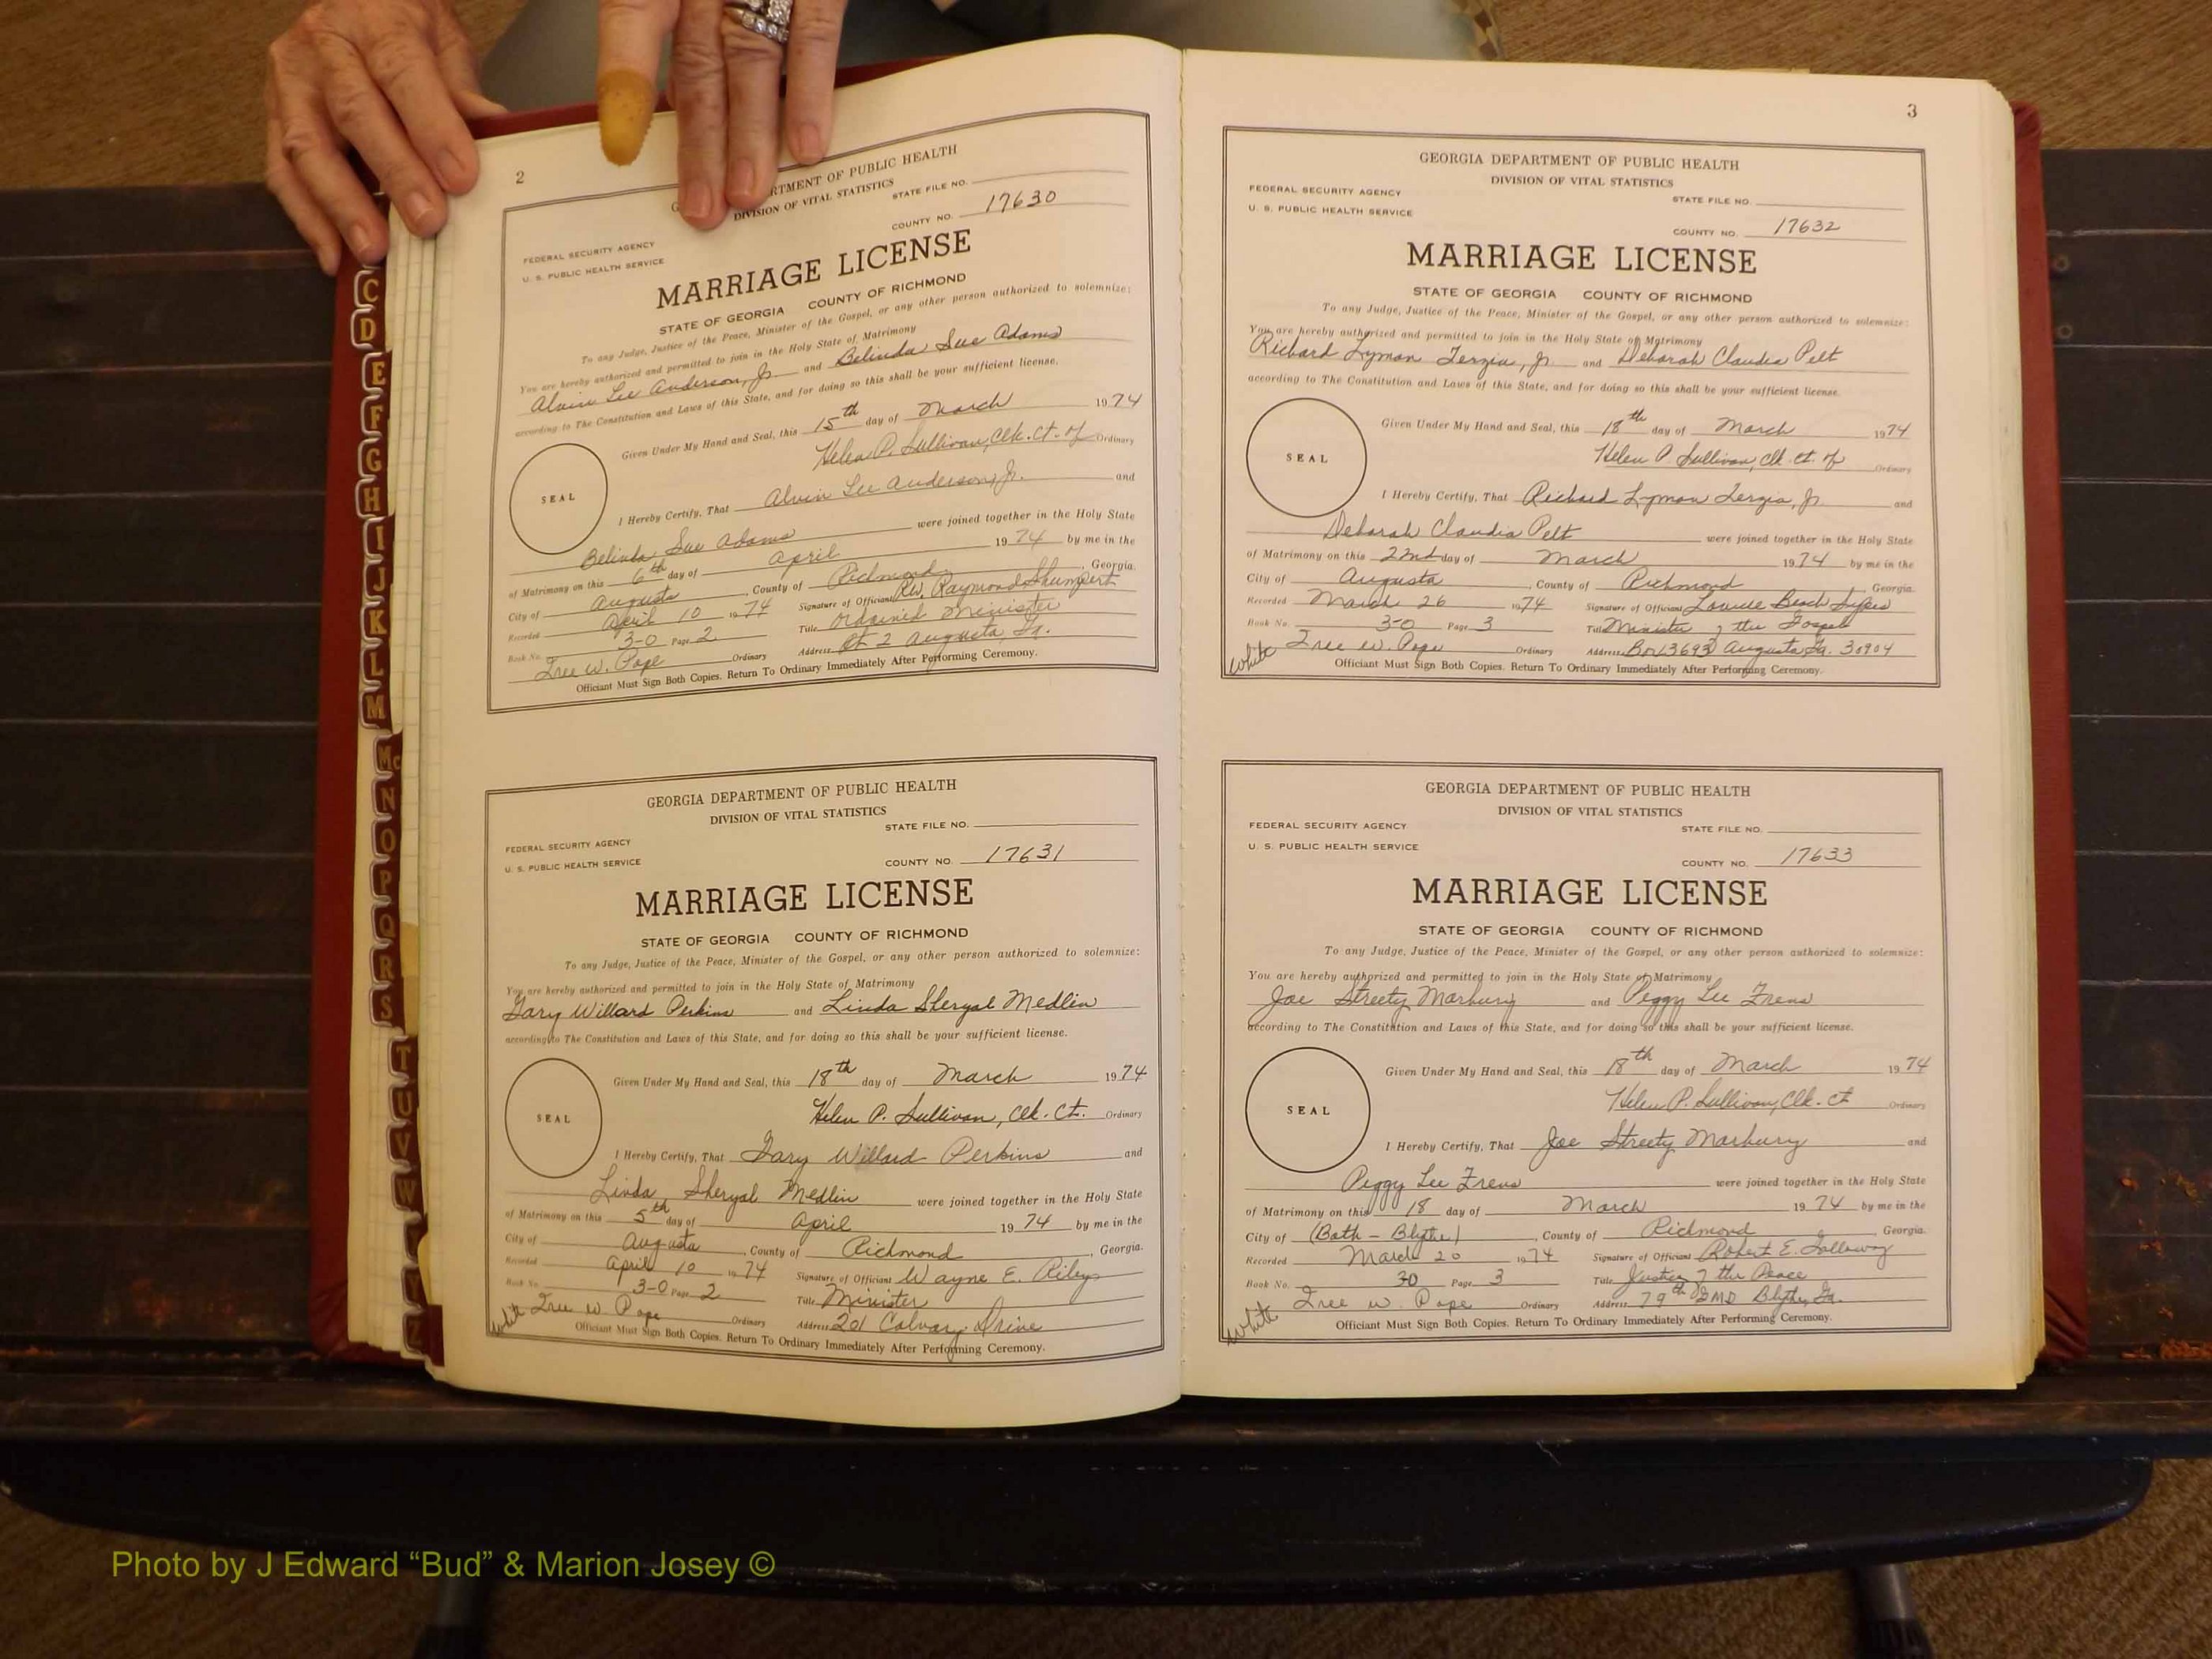 2
RTMENT OF PUBLIC HEALTH
DIVISION OF VITAL STATISTICS
STATE FILE NO.
COUNTY NO. 17630
FEDERAL SECURITY AGENCY
U. S. PUBLIC HEALTH SERVICE
MARRIAGE LICENSE
STATE OF GEORGIA COUNTY OF RICHMOND
To any Judge, Justice of the Peace, Minister of the Gospel, or any other person authorized to solemnize:
You are hereby authorized and permitted to join in the Holy State of Matrimony
Alvin Lee Anderson, Jr. and Belinda Sue Adams
according to The Constitution and Laws of this State, and for doing so this shall be your sufficient license.
Given Under My Hand and Seal, this 15th day of March 1974
Helen P. Sullivan, Clk. Ct. of Ordinary
SEAL
I Hereby Certify, That Alvin Lee Anderson, Jr. and
Belinda Sue Adams were joined together in the Holy State
of Matrimony on this 6th day of April 1974 by me in the
City of Augusta, County of Richmond, Georgia.
Recorded April 10 1974 Signature of Officiant Rev. Raymond Shumpert
Book No. 3-0 Page 2 Title Ordained Minister
Tree W. Pope Ordinary Address Rt 2 Augusta, Ga.
Officiant Must Sign Both Copies. Return To Ordinary Immediately After Performing Ceremony.
GEORGIA DEPARTMENT OF PUBLIC HEALTH
DIVISION OF VITAL STATISTICS
STATE FILE NO.
FEDERAL SECURITY AGENCY
U. S. PUBLIC HEALTH SERVICE
COUNTY NO. 17631
MARRIAGE LICENSE
STATE OF GEORGIA COUNTY OF RICHMOND
To any Judge, Justice of the Peace, Minister of the Gospel, or any other person authorized to solemnize:
You are hereby authorized and permitted to join in the Holy State of Matrimony
Gary Willard Perkins and Linda Sheryal Medlin
according to The Constitution and Laws of this State, and for doing so this shall be your sufficient license.
Given Under My Hand and Seal, this 18th day of March 1974
Helen P. Sullivan, Clk. Ct. Ordinary
SEAL
I Hereby Certify, That Gary Willard Perkins and
Linda Sheryal Medlin were joined together in the Holy State
of Matrimony on this 5th day of April 1974 by me in the
City of Augusta, County of Richmond, Georgia.
Recorded April 10 1974 Signature of Officiant Wayne E. Riley
Book No. 3-0 Page 2 Title Minister
white Tree W. Pope Ordinary Address 201 Calvary Drive
Officiant Must Sign Both Copies. Return To Ordinary Immediately After Performing Ceremony.
3
GEORGIA DEPARTMENT OF PUBLIC HEALTH
DIVISION OF VITAL STATISTICS
FEDERAL SECURITY AGENCY
U. S. PUBLIC HEALTH SERVICE
STATE FILE NO.
COUNTY NO. 17632
MARRIAGE LICENSE
STATE OF GEORGIA COUNTY OF RICHMOND
To any Judge, Justice of the Peace, Minister of the Gospel, or any other person authorized to solemnize:
You are hereby authorized and permitted to join in the Holy State of Matrimony
Richard Lyman Terzia, Jr. and Deborah Claudia Pelt
according to The Constitution and Laws of this State, and for doing so this shall be your sufficient license.
Given Under My Hand and Seal, this 18th day of March 1974
Helen P. Sullivan, Clk. Ct. of Ordinary
SEAL
I Hereby Certify, That Richard Lyman Terzia, Jr. and
Deborah Claudia Pelt were joined together in the Holy State
of Matrimony on this 22nd day of March 1974 by me in the
City of Augusta, County of Richmond, Georgia.
Recorded March 26 1974 Signature of Officiant Beach
Book No. 3-0 Page 3 Title Minister of the Gospel
white Tree W. Pope Ordinary Address Box 3693 Augusta, Ga. 30904
Officiant Must Sign Both Copies. Return To Ordinary Immediately After Performing Ceremony.
GEORGIA DEPARTMENT OF PUBLIC HEALTH
DIVISION OF VITAL STATISTICS
FEDERAL SECURITY AGENCY
STATE FILE NO.
U. S. PUBLIC HEALTH SERVICE
COUNTY NO. 17633
MARRIAGE LICENSE
STATE OF GEORGIA COUNTY OF RICHMOND
To any Judge, Justice of the Peace, Minister of the Gospel, or any other person authorized to solemnize:
You are hereby authorized and permitted to join in the Holy State of Matrimony
Joe Streety Marbury and Peggy Lee Frens
according to The Constitution and Laws of this State, and for doing so this shall be your sufficient license.
Given Under My Hand and Seal, this 18th day of March 1974
Helen P. Sullivan, Clk. Ct Ordinary
SEAL
I Hereby Certify, That Joe Streety Marbury and
Peggy Lee Frens were joined together in the Holy State
of Matrimony on this 18 day of March 1974 by me in the
City of (Bath - Blythe), County of Richmond Georgia.
Recorded March 20 1974 Signature of Officiant Robert E. Galloway
Book No. 30 Page 3 Title Justice of the Peace
white Tree W. Pope Ordinary Address 79th GMD Blythe, Ga.
Officiant Must Sign Both Copies. Return To Ordinary Immediately After Performing Ceremony.
C
D
E
F
G
H
I
J
K
L
M
Mc
N
O
P
Q
R
S
T
U
V
W
Z
Photo by J Edward “Bud” & Marion Josey ©